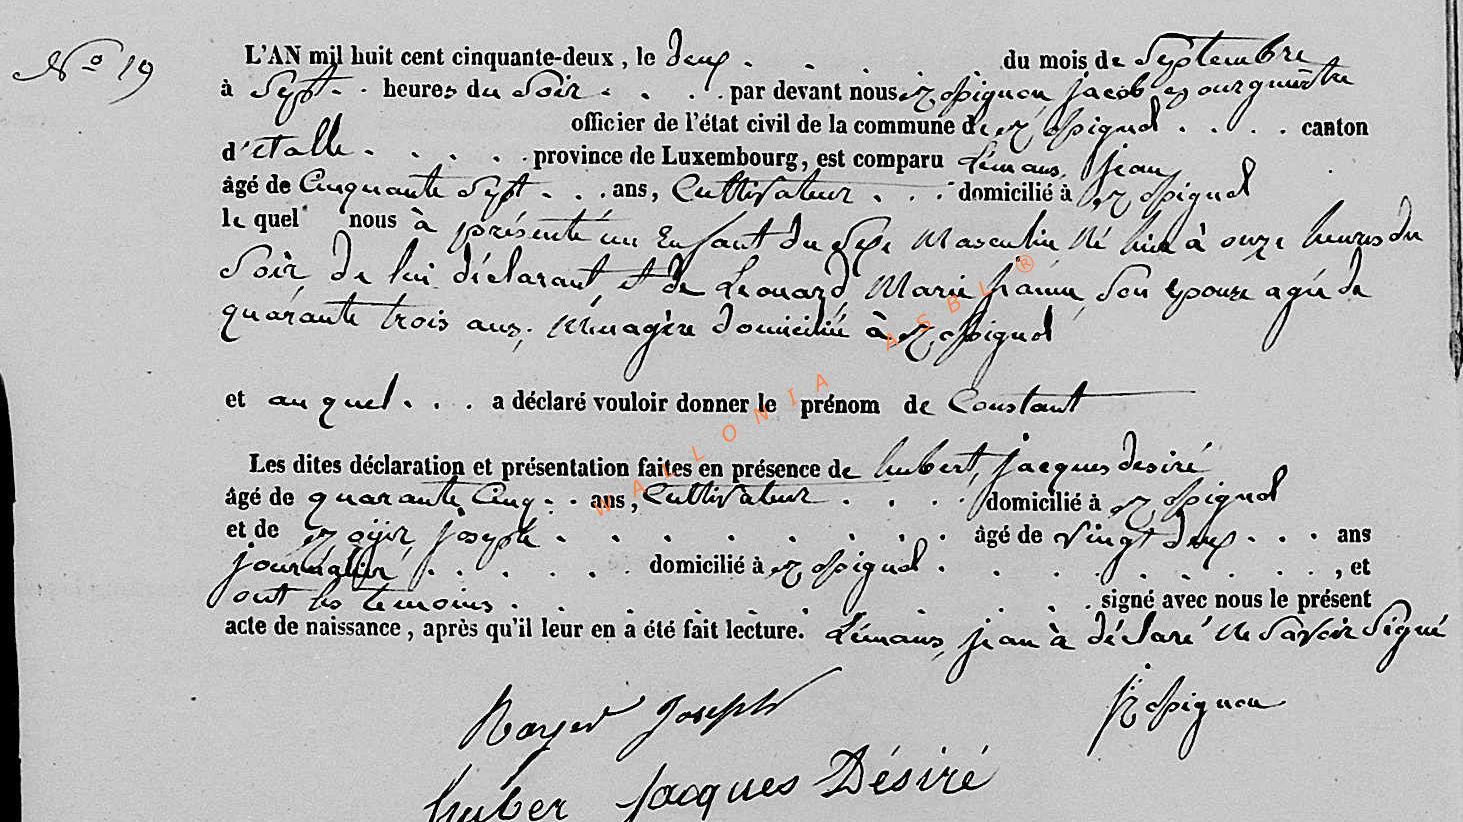 N° 19
L'AN mil huit cent cinquante-deux, le deux . . . . du mois de Septembre
à Sept . . heures du Soir . . . . par devant nous Rossignon jacob Bourgumêstre
officier de l'état civil de la commune de Rossignol . . . . canton
d'etalle . . . . . province de Luxembourg, est comparu Lémans, jean
âgé de Cinquante Sept . . . ans, Cultivateur . . . domicilié à Rossignol
le quel nous à présenté un Enfant du Sexe Masculin Né hier à onze heures du
Soir, de lui déclarant, et de Leonard, Marie jeanne, Son Epouze agée de
quarante trois ans, Ménagère domiciliée à Rossignol
et au quel . . . a déclaré vouloir donner le prénom de Constant
Les dites déclaration et présentation faites en présence de hubert, jacques desiré
âgé de quarante Cinq . . ans, Cultivateur . . . . domicilié à Rossignol
et de joseph . . . . . . . . âgé de vingt deux . . . ans
journalier . . . . . domicilié à Rossignol . . . . . . . . , et
ont les temoins . . . . . . . . signé avec nous le présent
acte de naissance, après qu'il leur en a été fait lecture. Lémans, jean à déclaré Ne Savoir Signé
Joseph
Rossignon
huber Jacques Désiré
WALLONIA ASBL ®